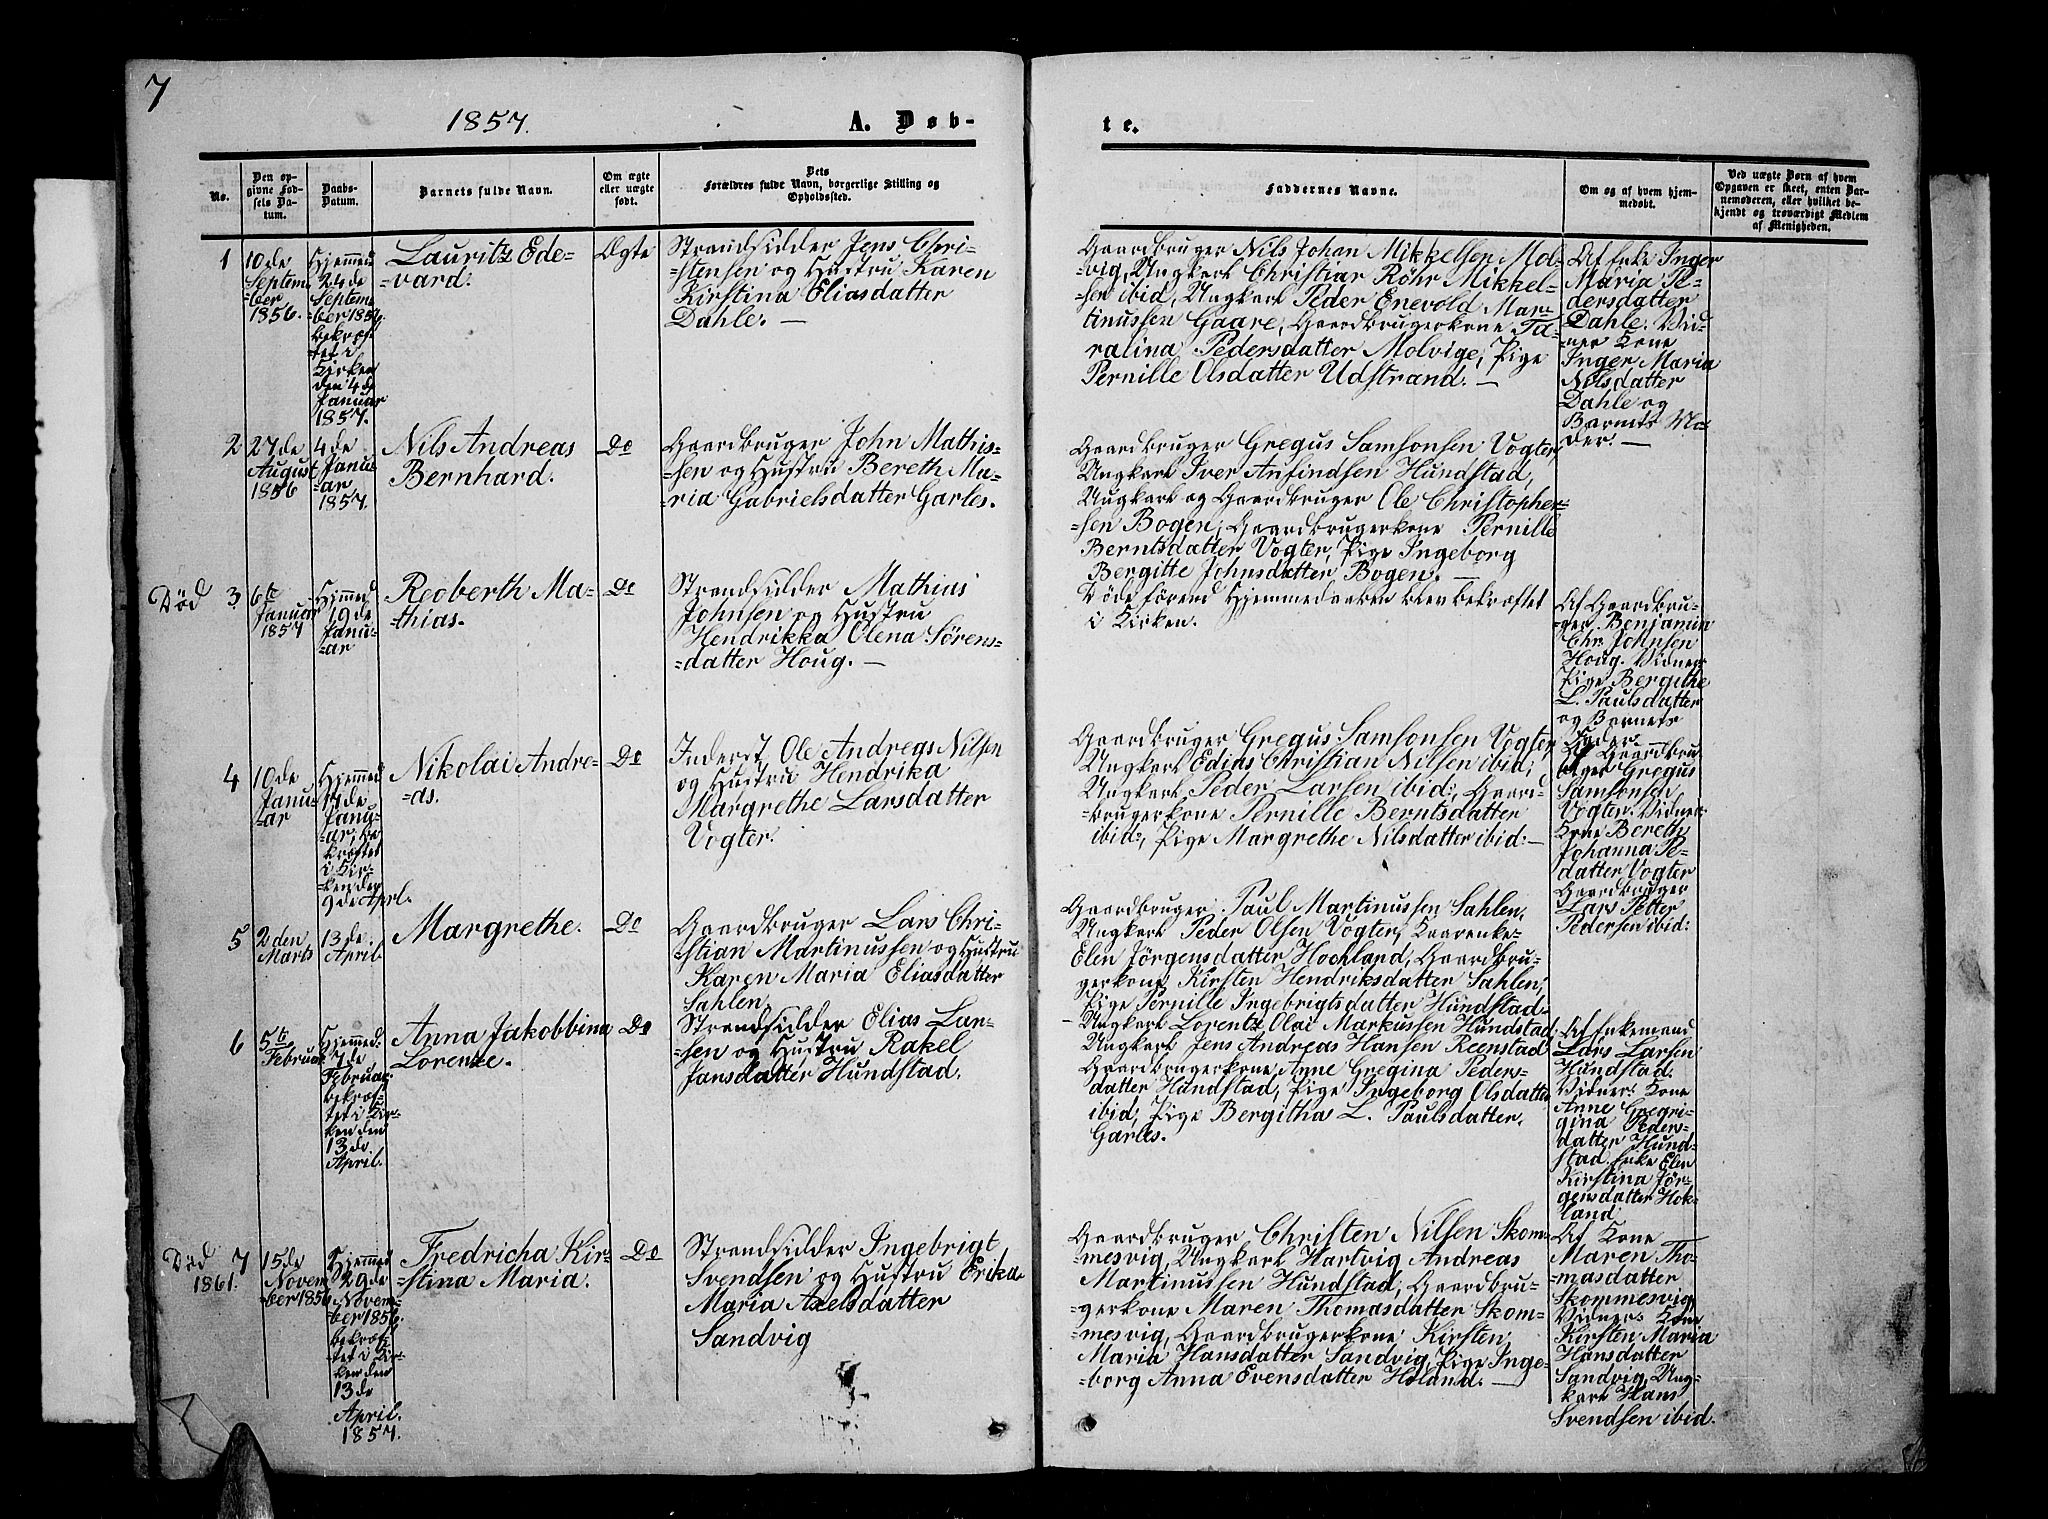 7
1857.
A. Døb-
te.
No.
Den op-
givne Fød-
sels Da-
tum.
Daabs-
Datum.
Barnets fulde Navn.
Om ægte
eller uægte
født.
Dets
Forældres fulde Navn, borgerlige Stilling og
Opholdssted.
Faddernes Navne.
Om og af hvem hjem-
medøbt.
Ved uægte Børn af hvem
Opgaven er skeet, enten Bar-
nemoderen, eller hvilket be-
kjendt og troværdigt Medlem
af Menigheden.
1
10de
Septem
-ber
1856.
Hjemmed
24de
Septem
-ber 1856
bekræf
-tet i
Kirken
den 4de
Januar
1857.
Lauritz Ede-
=vard.
Ægte
Strandsidder Jens Chri-
=stensen og Hustru Karen
Kirstina Eliasdatter
Dahle. —
Gaardbruger Nils Johan Mikkelsen Mol-
-vig, Ungkarl Christiar Röhr Mikkel-
-sen ibid, Ungkarl Peder Enevold Mar-
tinussen Gaare, Gaardbrugerkone Ta-
ralina Pedersdatter Molvige, Pige
Pernille Olsdatter Udstrand. —
Af Enke Inger
Maria Pe-
dersdatter
Dahle. Vid-
ner Kone
Inger Maria
Nilsdatter
Dahle og
Barnets Mo-
der. —
2
27de
August
1856
4de
Janu-
-ar
1857.
Nils Andreas
Bernhard.
Do
Gaardbruger John Mathis-
=sen og Hustru Bereth Ma-
=ria Gabrielsdatter Garles.
Gaardbruger Gregus Samsonsen Vogter,
Ungkarl Iver Anfindsen Hundstad,
Ungkarl og Gaardbruger Ole Christopher-
=sen Bogen, Gaardbrugerkone Pernille
Berntsdatter Vogter, Pige Ingeborg
Bergitte Johnsdatter Bogen. —
Död 3
6te
Januar
1857
Hjemmed
19de
Janu-
-ar
Reoberth Ma-
=thias.
Do
Strandsidder Mathias
Johnsen og Hustru
Hendrikka Olena Sörens-
=datter Houg. —
Döde förend Hjemmedaaben blev bekræftet
i Kirken.
Af Gaardbru-
-ger Benjamin
Chr. Johnsen
Houg. Vidner
Pige Bergithe
L. Paulsdatter
og Barnets
Fader.
4
10de
Janu-
-ar
Hjemmed
17de
Janu-
-ar, be-
kræftet
i Kir-
-ken den
9de Aprl.
Nikolai Andre-
=as.
Do
Inderst Ole Andreas Nilsen
og Hustru Hendrika
Margrethe Larsdatter
Vogter.
Gaardbruger Gregus Samsonsen Vogter,
Ungkarl Edias Christian Nilsen ibid;
Ungkarl Peder Larsen ibid:, Gaard-
-brugerkone Pernille Berntsdatter
ibid:, Pige Margrethe Nilsdatter ibid:—
Af Gaardbru-
-ger Gregus
Samsonsen
Vogter. Vidner:
Kone Bereth
Johanna Pe-
datter Vogter
Gaardbruger
Lars Petter
Pedersen ibid:
5
2den
Marts
13de
April
Margrethe.
Do
Gaardbruger Lars Chri-
stian Martinussen og Hustru
Karen Maria Eliasdatter
Sahlen.
Gaardbruger Paul Martinussen Sahlen,
Ungkarl Peder Olsen Vogter,
Elen Jörgensdatter Hochland, Gaardbru-
gerkone Kirsten Hendriksdatter Sahlen,
Pige Pernille Ingebrigtsdatter Hundstad-
6
5te
Februar
Hjemmed:
7de
Februar
bekræf-
-tet i Kir-
ken den
13de
April.
Anna Jakobbina
Lorenze.
Do
Strandsidder Elias Lar-
=sen og Hustru Rakel
Jansdatter Hundstad.
Ungkarl Lorentz Olai Markussen Hundstad
Ungkarl Jens Andreas Hansen Reenstad
Gaardbrugerkone Anne Gregina Peders-
datter Hundstad, Pige Ingeborg Olsdatter
ibid; Pige Bergitha L. Paulsdatter,
Garles.
Af Enkemand
Lars Larsen
Hundstad.
Vidner: Kone
Anne Gregri-
gina Peders-
datter Hund-
stad. Enke Elen
Kirstina Jör-
gensdatter Hok-
land
Död 7
1861.
15de
Novem
-ber 1856
Hjemmed
29de
Novem-
-ber 1856.
bekræf-
-tet i Kir-
ken den
13de
April.
1857.
Fredricha Kir-
=stina Maria.
Do
Strandsidder Ingebrigt
Svendsen og Hustru Erika
Maria Axelsdatter
Sandvig
Gaardbruger Christen Nilsen Skom-
mesvig, Ungkarl Hartvig Andreas
Martinussen Hundstad, Gaardbru-
-gerkone Maren Thomasdatter Skom-
=mesvig, Gaardbrugerkone Kirsten
Maria Hansdatter Sandvig, Pige Inge-
=borg Anna Evensdatter Holand. —
Af Kone
Maren Tho-
=masdatter
Skommesvig
Vidner: Kone
Kirsten Maria
Hansdatter
Sandvig, Ung-
karl Hans
Svendsen ibid.